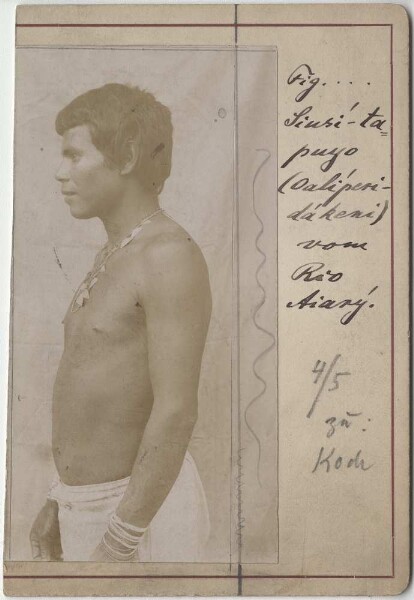 Fig. . . .
Siusí-ta=
puyo
(Oalíperi-
dákeni)
vom
Río
Aiarý.
4/5
zu:
Koch